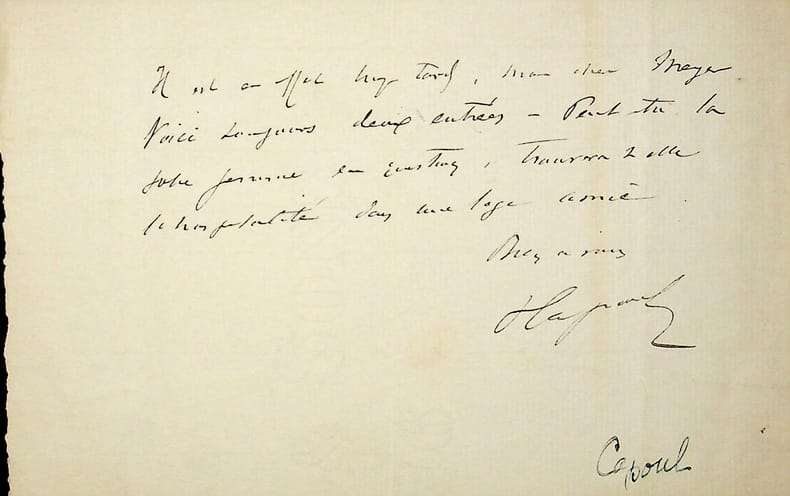 Il est en effet trop tard, mon cher Meyer
Voici toujours deux entrées – Peut être la
jolie femme en question, trouvera t elle
l'hospitalité dans une loge amie.
Bien à vous
Capoul